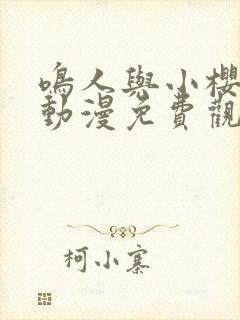 鳴人與小櫻
動漫免費觀
柯小寨